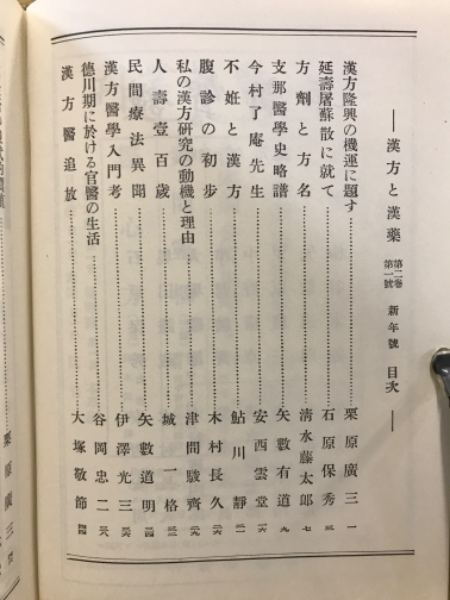 ━━ 漢方と漢藥 第二卷 第一號 新年號 目次 ━━
漢方隆興の機運に題す……栗原廣三…一
延壽屠蘇散に就て……石原保秀…三
方劑と方名……清水藤太郎…七
支那醫學史略譜……矢數有道…九
今村了庵先生……安西雲堂…一六
不妊と漢方……鮎川靜…二一
腹診の初步……木村長久…二六
私の漢方研究の動機と理由……津間駿齊…二九
人壽壹百歲……城一格…三三
民間療法異聞……矢數道明…三四
漢方醫學入門考……伊澤光三…三六
德川期に於ける官醫の生活……谷岡忠二…三八
漢方醫追放……大塚敬節…四四